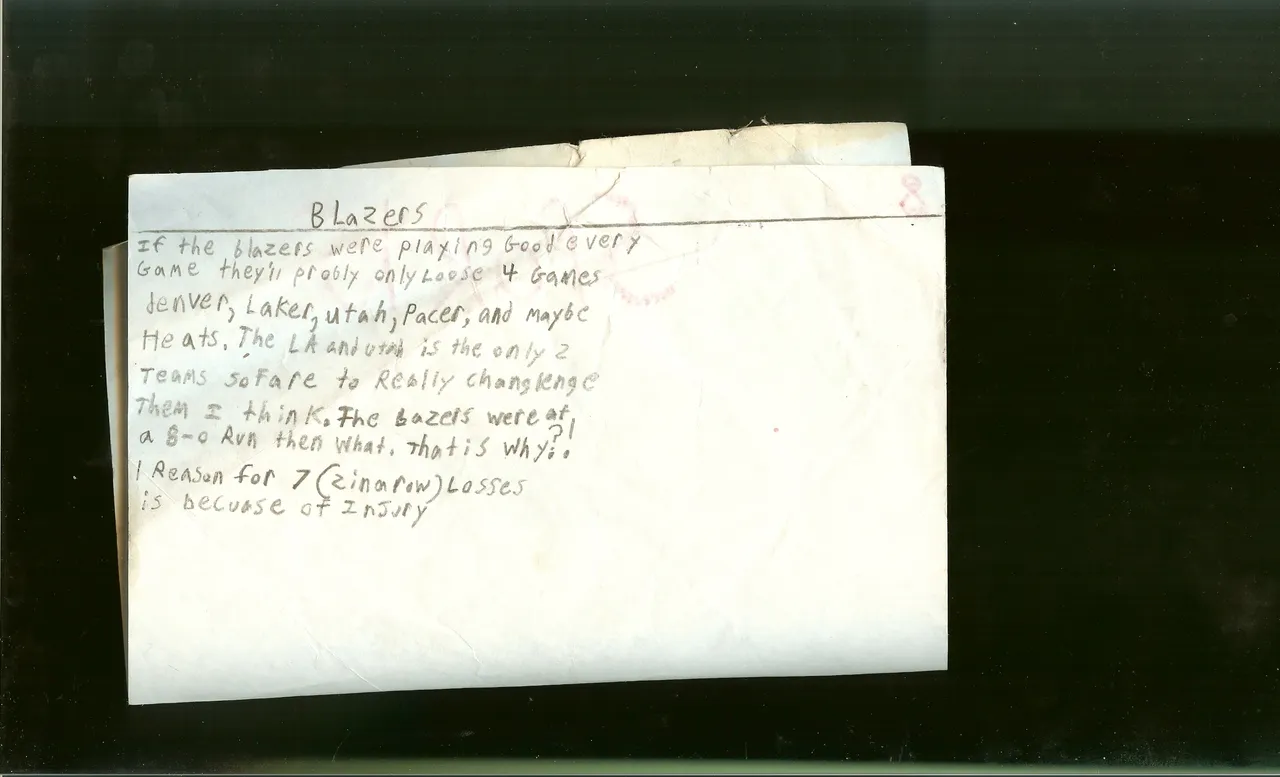 8
Blazers
If the blazers were playing Good every
Game they'll probly only Loose 4 Games
denver, Laker, utah, Pacer, and maybe
Heats. The LA and utah is the only 2
Teams so Fare to Really changlenge
Them I think. The bazers were at
a 8-0 Run then what. That is why?!.
1 Reason for 7 (2 in a row) Losses
is becuase of Injury